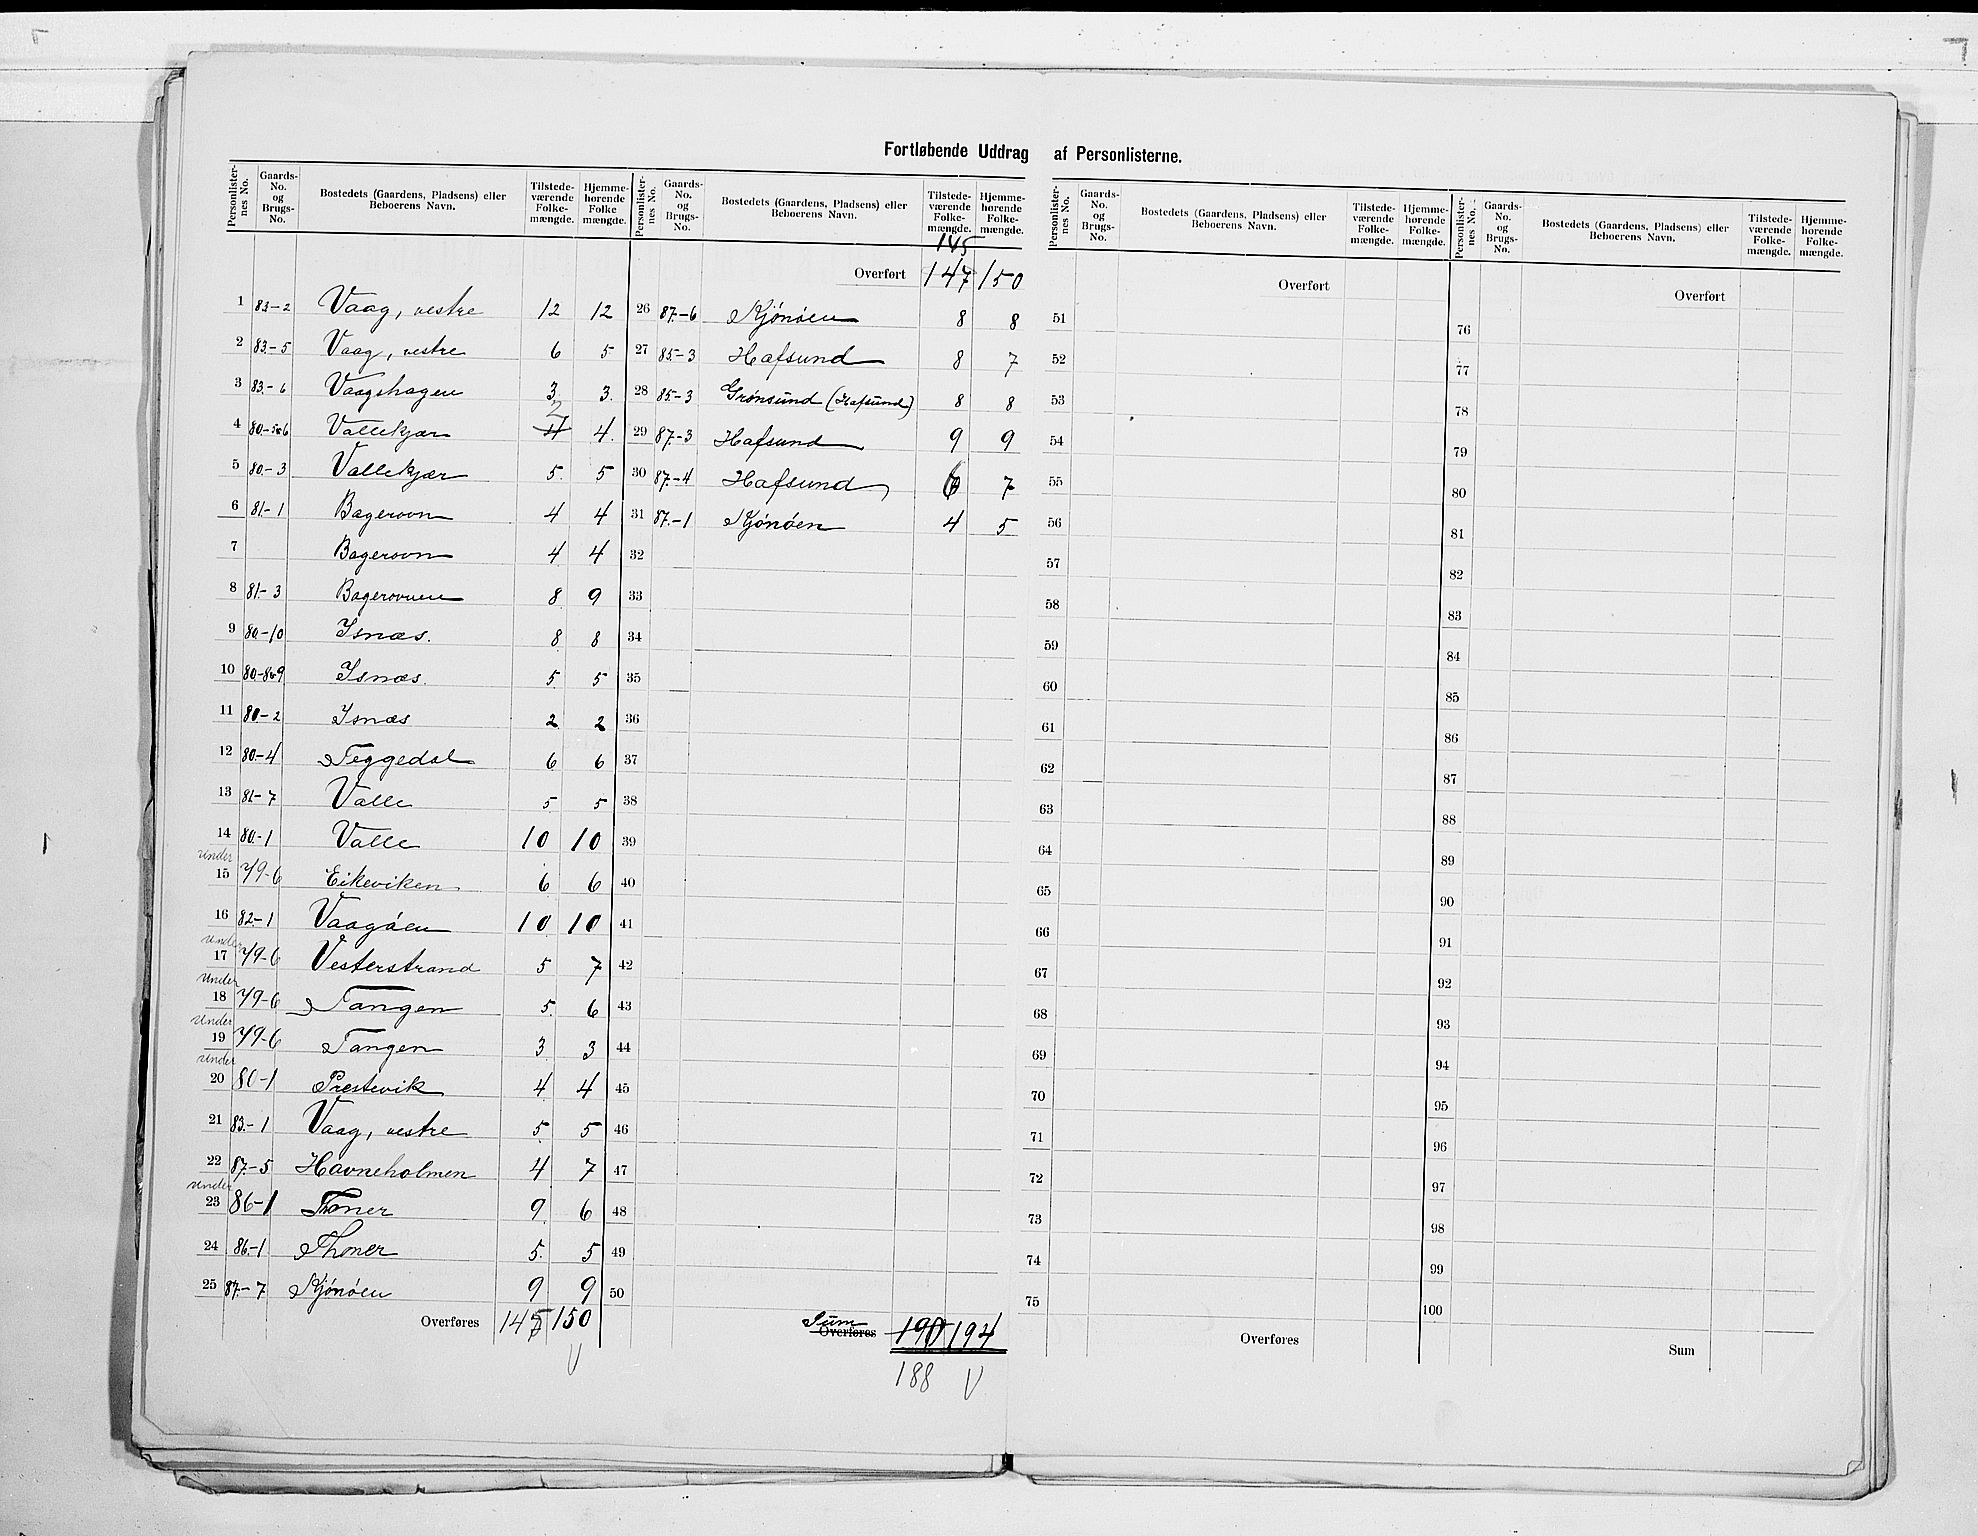 Fortløbende Uddrag af Personlisterne.
Personlisternes No. | Gaards-No. og Brugs-No. | Bostedets (Gaardens, Pladsens) eller Beboerens Navn. | Tilstedeværende Folkemængde. | Hjemmehørende Folkemængde.
1 83-2 Vaag, vestre 12 12
2 83-5 Vaag, vestre 6 5
3 83-6 Vaagshagen 3 3
4 80-5&6 Vallekjær 4 2 4
5 80-3 Vallekjær 5 5
6 81-1 Bagerovn 4 4
7 Bagerovn 4 4
8 81-3 Bagerovnen 8 9
9 80-10 Isnæs. 8 8
10 80-8&9 Isnæs. 5 5
11 80-2 Isnæs 2 2
12 80-4 Teggedal 6 6
13 81-7 Valle 5 5
14 80-1 Valle 10 10
under
15 79-6 Eikeviken 6 6
16 82-1 Vaagöen 10 10
under
17 79-6 Vesterstrand 5 7
under
18 79-6 Tangen 5 6
under
19 79-6 Tangen 3 3
under
20 80-1 Prestevik 4 4
21 83-1 Vaag, vestre 5 5
22 87-5 Havneholmen 4 7
under
23 86-1 Thoner 9 6
24 86-1 Thoner 5 5
25 87-7 Kjönöen 9 9
Overføres 145 150
V
Personlisternes No. | Gaards-No. og Brugs-No. | Bostedets (Gaardens, Pladsens) eller Beboerens Navn. | Tilstedeværende Folkemængde. | Hjemmehørende Folkemængde.
145
Overført 147 150
26 87-6 Kjönöen 8 8
27 85-3 Hafsund 8 7
28 85-3 Grönsund (Hafsund) 8 8
29 87-3 Hafsund 9 9
30 87-4 Hafsund 6 7
31 87-1 Kjönöen 4 5
32
33
34
35
36
37
38
39
40
41
42
43
44
45
46
47
48
49
50
Sum Overføres 190 194
188 V
Personlisternes No. | Gaards-No. og Brugs-No. | Bostedets (Gaardens, Pladsens) eller Beboerens Navn. | Tilstedeværende Folkemængde. | Hjemmehørende Folkemængde.
Overført
51
52
53
54
55
56
57
58
59
60
61
62
63
64
65
66
67
68
69
70
71
72
73
74
75
Overføres
Personlisternes No. | Gaards-No. og Brugs-No. | Bostedets (Gaardens, Pladsens) eller Beboerens Navn. | Tilstedeværende Folkemængde. | Hjemmehørende Folkemængde.
Overført
76
77
78
79
80
81
82
83
84
85
86
87
88
89
90
91
92
93
94
95
96
97
98
99
100
Sum